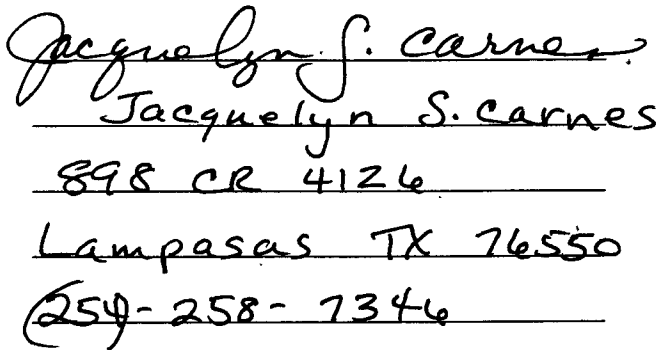 Jacquelyn S. Carnes
Jacquelyn S. Carnes
898 CR 4126
Lampasas TX 76550
(254)-258-7346